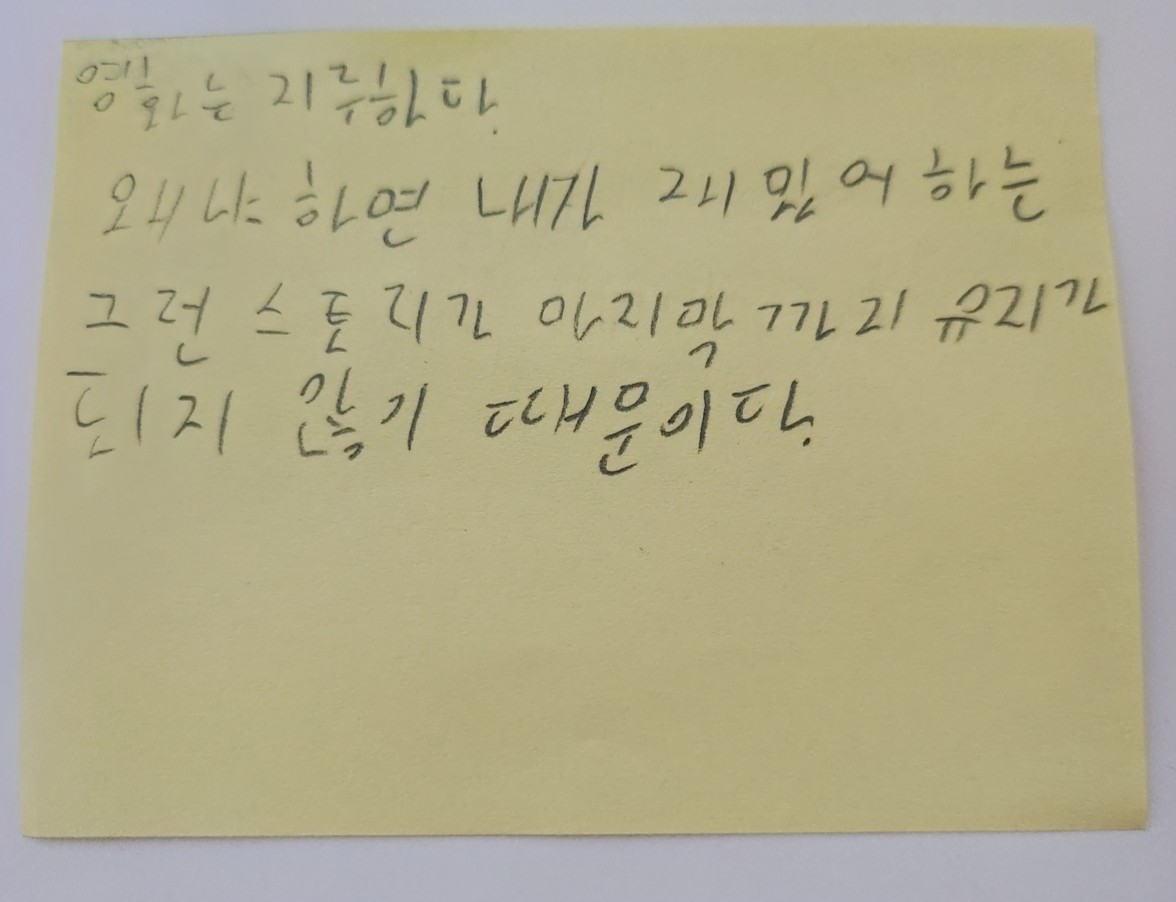 영화는 지루하다.
왜냐하면 내가 재밌어하는
그런 스토리가 마지막까지 유지가
되지 않기 때문이다.